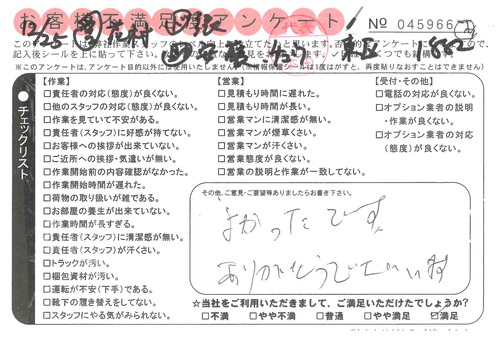 お客様不満足度アンケート！ № 0459662
13/25
記入後シールを上に貼って下さい。
(※このアンケートは、アンケート目的以外には使用いたしません。※情報保護シールは1度はがすと、再度貼りなおすことはできません)
チェックリスト
【作業】
□責任者の対応(態度)が良くない。
□他のスタッフの対応(態度)が良くない。
□作業を見ていて不安がある。
□責任者(スタッフ)に好感が持てない。
□お客様への挨拶が出来ていない。
□ご近所への挨拶・気遣いが無い。
□作業開始前の内容確認がなかった。
□作業開始時間が遅れた。
□荷物の取り扱いが雑である。
□お部屋の養生が出来ていない。
□作業時間が長すぎる。
□責任者(スタッフ)に清潔感が無い。
□責任者(スタッフ)が汗くさい。
□トラックが汚い。
□梱包資材が汚い。
□運転が不安(下手)である。
□靴下の履き替えをしてない。
□スタッフにやる気がみられない。
【営業】
□見積もり時間に遅れた。
□見積もり時間が長い。
□営業マンに清潔感が無い。
□営業マンが煙草くさい。
□営業マンが汗くさい。
□営業態度が良くない。
□営業の説明と作業が一致してない。
【受付・その他】
□電話の対応が良くない。
□オプション業者の説明
・作業が良くない。
□オプション業者の対応
(態度)が良くない。
その他、ご意見・ご要望等ありましたらお書き下さい。
よかったです。
ありがとうございます
☆当社をご利用いただきまして、ご満足いただけたでしょうか?
□不満 □やや不満 □普通 □やや満足 ☑満足